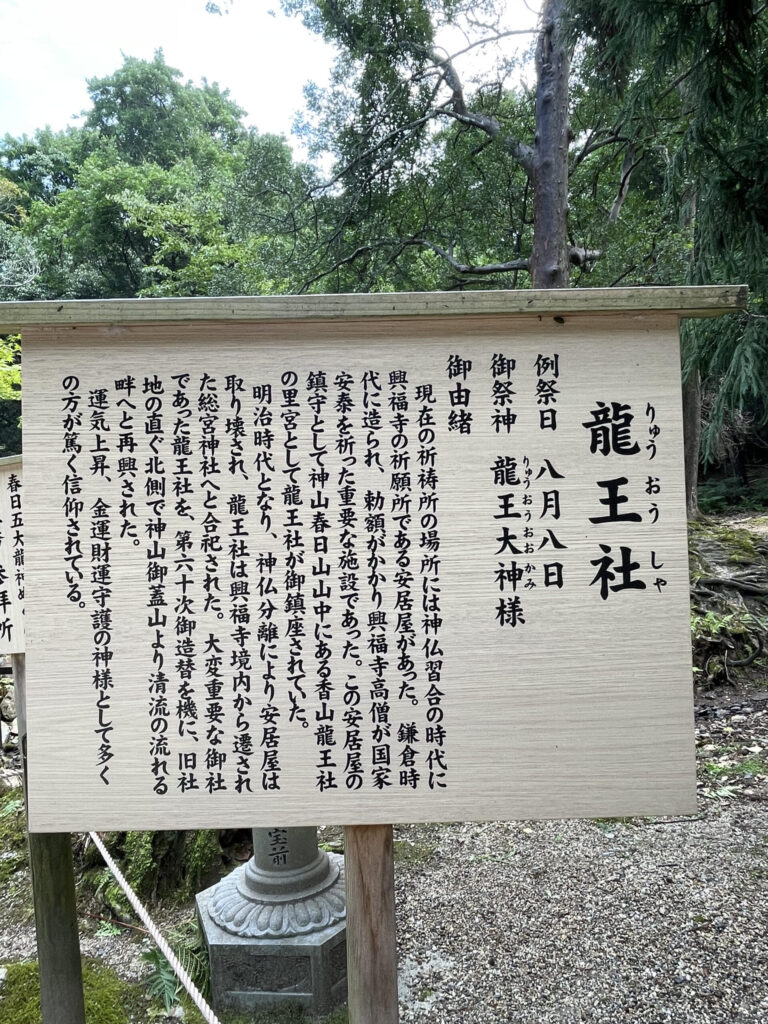 龍王社
りゅう おう しゃ
例祭日 八月八日
御祭神 龍王大神様
りゅうおうおおかみ
御由緒
現在の祈祷所の場所には神仏習合の時代に
興福寺の祈願所である安居屋があった。鎌倉時
代に造られ、勅額がかかり興福寺高僧が国家
安泰を祈った重要な施設であった。この安居屋の
鎮守として神山春日山山中にある香山龍王社
の里宮として龍王社が御鎮座されていた。
明治時代となり、神仏分離により安居屋は
取り壊され、龍王社は興福寺境内から遷され
た総宮神社へと合祀された。大変重要な御社
であった龍王社を、第六十次御造替を機に、旧社
地の直ぐ北側で神山御蓋山より清流の流れる
畔へと再興された。
運気上昇、金運財運守護の神様として多く
の方が篤く信仰されている。
春日五大龍神め
拝所
宝前